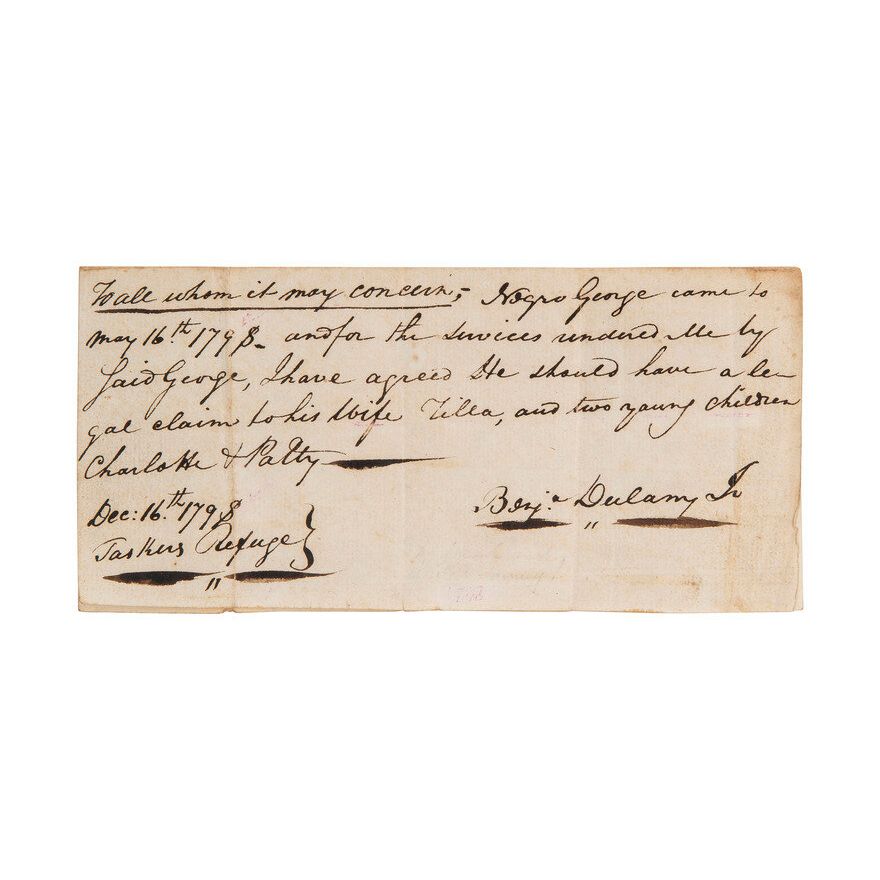 To all whom it may concern,- Negro George came to
May 16.th 1798_ and for the services rendered Me by
Said George, I have agreed He should have a le-
gal claim to his Wife Tilla, and two young children
Charlotte & Patty
Dec: 16.th 1798
Benj.a Dulany Jr
Taskers Refuge